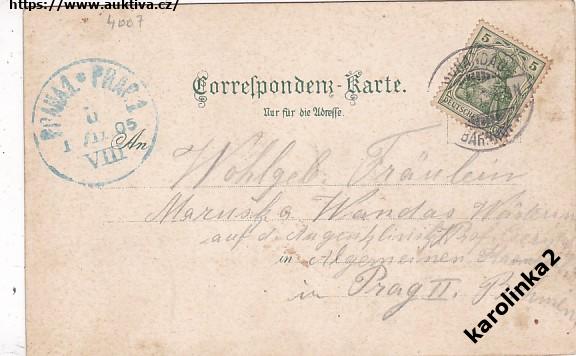 https://www.auktiva.cz/
4007
PRAHA 1 * PRAG 1
VIII
05
Correspondenz-Karte.
Nur für die Adresse.
5 5
BAHNHOF
An
Wohlgeb. Fräulein
Maruska Wandas
auf d. Augenklinik
im Allgemeinen
in Prag II.
karolinka2